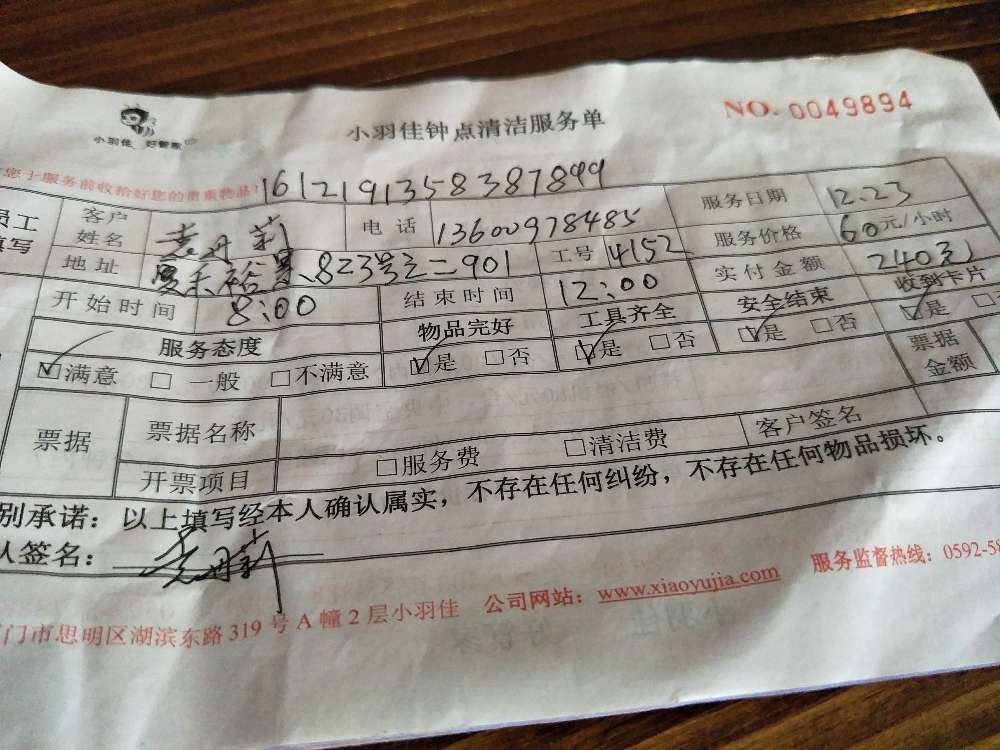 小羽佳 好管家
小羽佳钟点清洁服务单
NO. 0049894
您于服务前收拾好您的贵重物品!
161219135838 7899
员工填写 客户姓名 袁丹莉 电话 13600978485 服务日期 12.23
地址 823号之二901 工号 4152 服务价格 60元/小时
开始时间 8:00 结束时间 12:00 实付金额 240元
服务态度 物品完好 工具齐全 安全结束 收到卡片
☑满意 □一般 □不满意 ☑是 □否 ☑是 □否 ☑是 □否 ☑是 □
票据 票据名称 票据金额
开票项目 □服务费 □清洁费 客户签名
别承诺：以上填写经本人确认属实，不存在任何纠纷，不存在任何物品损坏。
人签名： 袁丹莉
门市思明区湖滨东路 319 号 A 幢 2 层小羽佳 公司网站：www.xiaoyujia.com 服务监督热线：0592-58